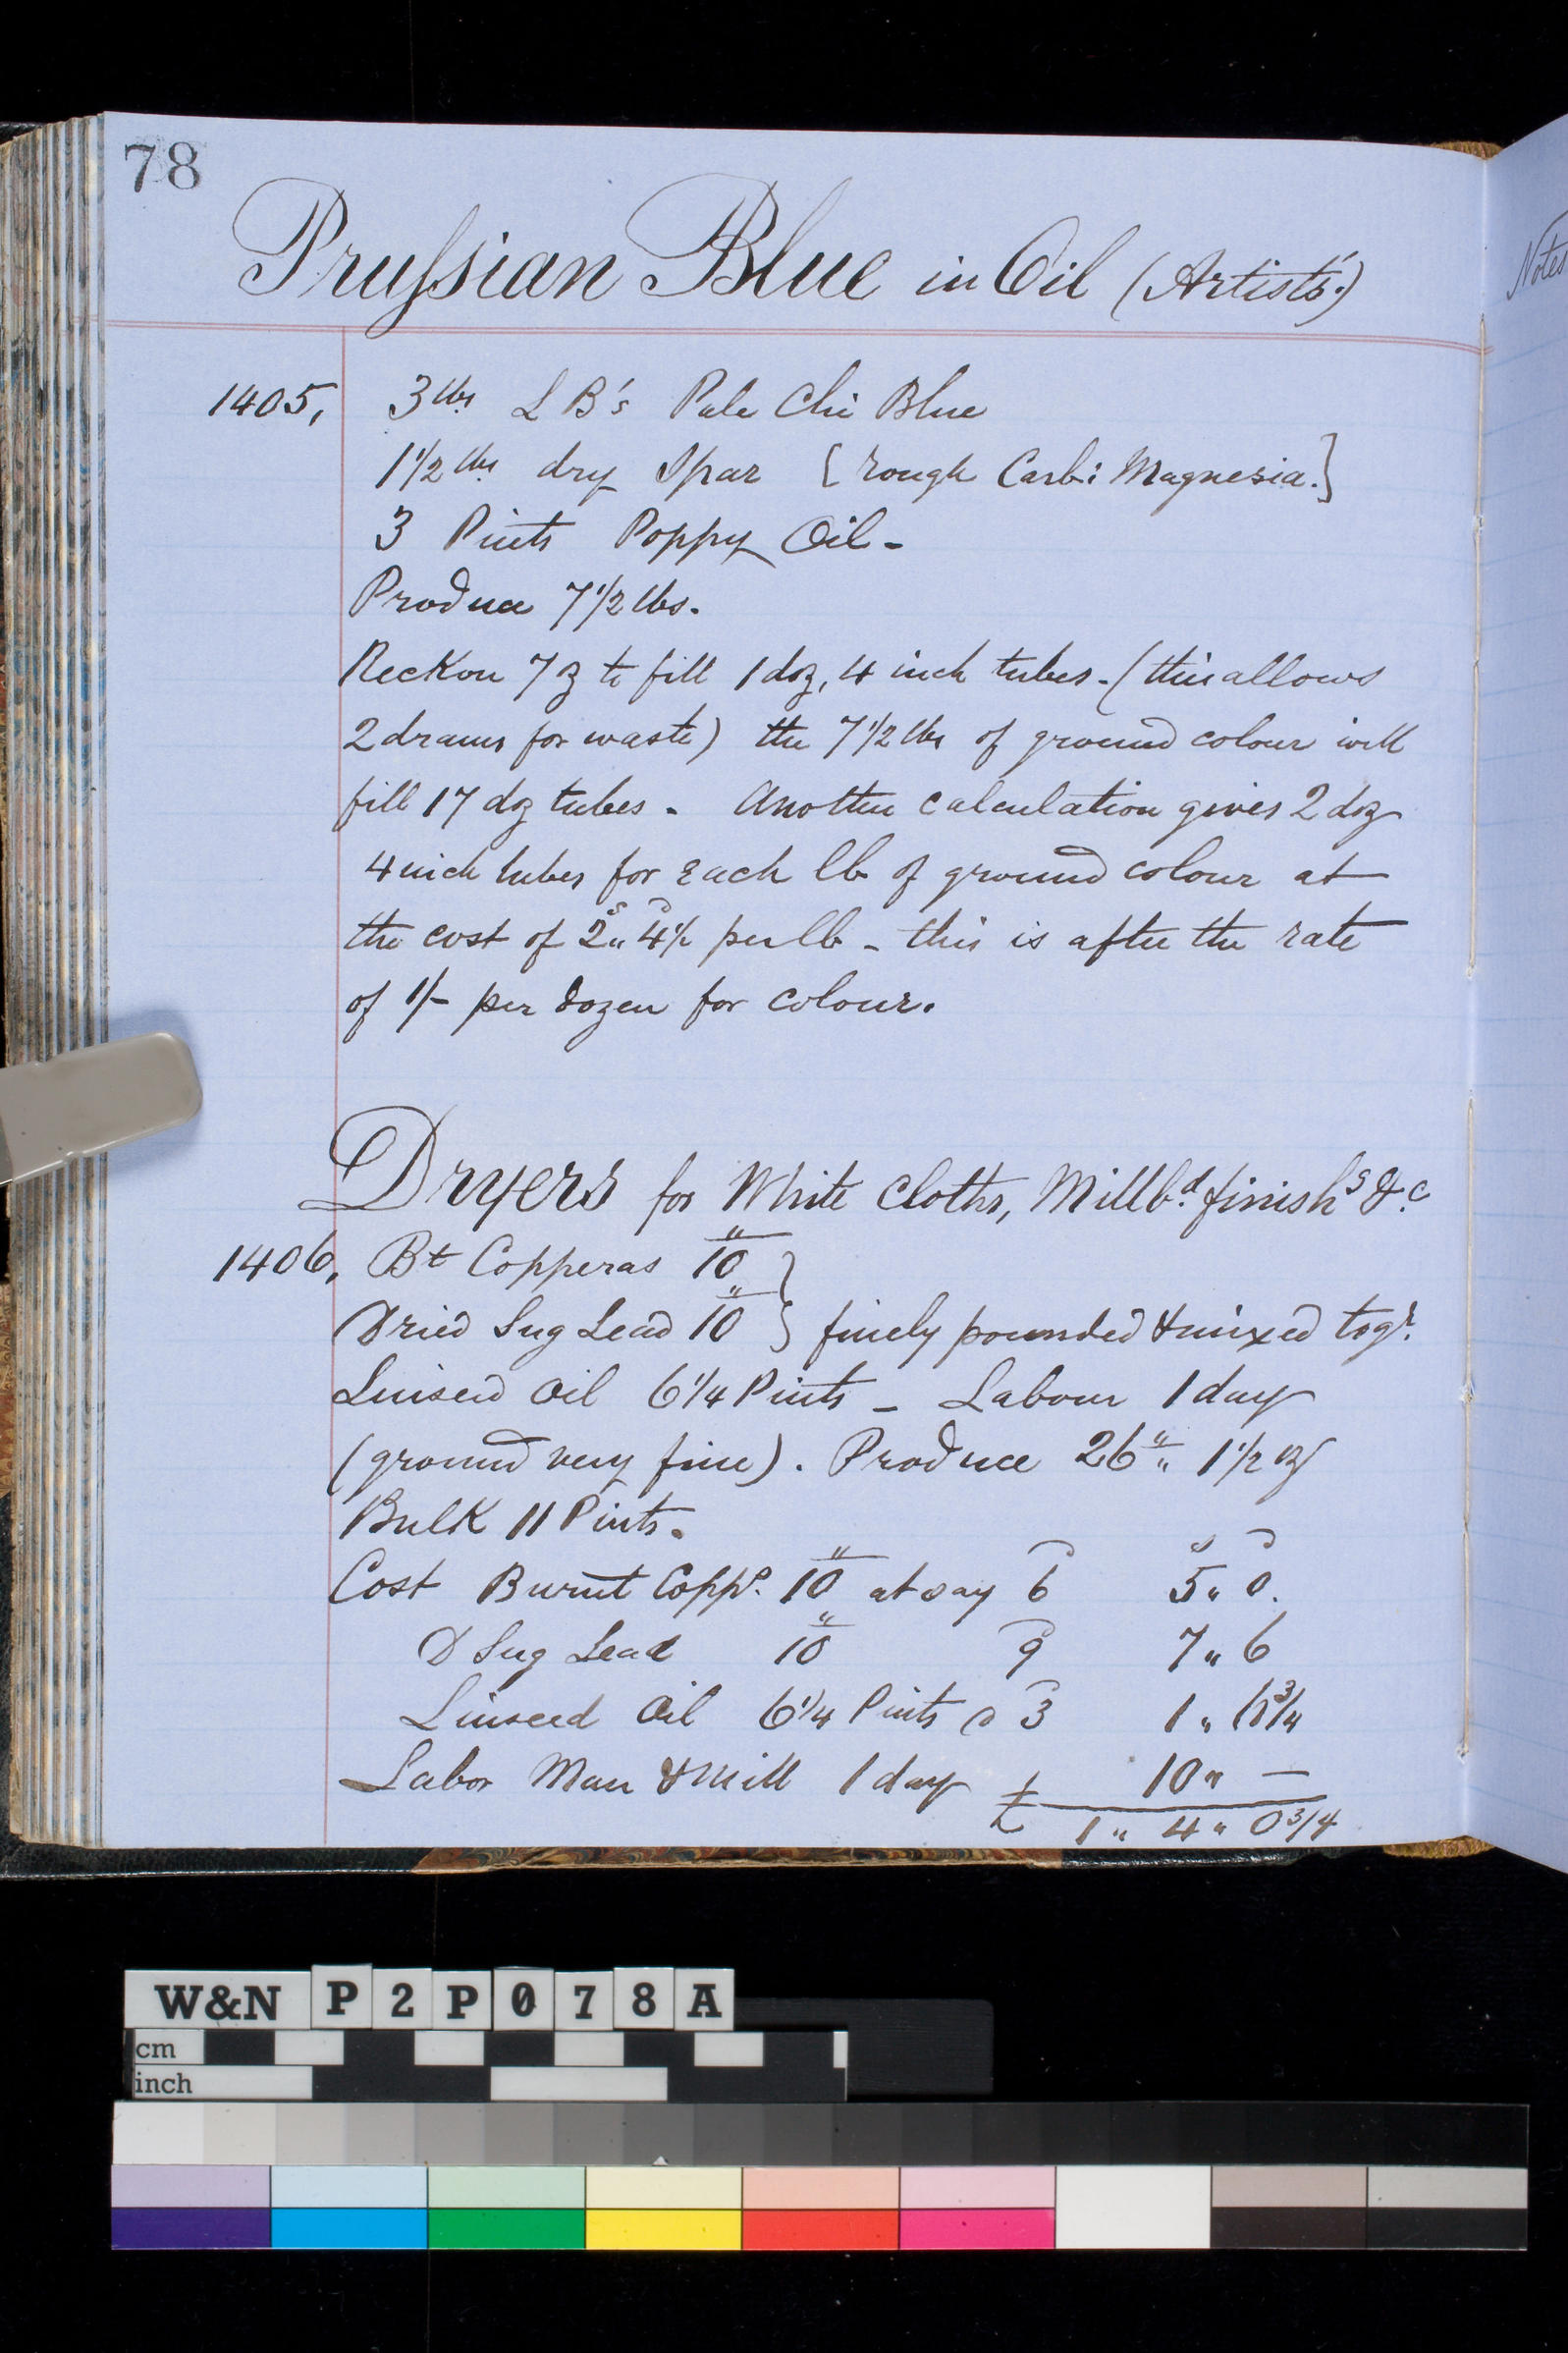 78
Prussian Blue in Oil (Artists'.)
Notes
1405, 3 lbs L B's Pale Chi Blue
1 1/2 lbs dry Spar [rough Carb: Magnesia.]
3 Pints Poppy Oil -
Produce 7 1/2 lbs.
Reckon 7 oz to fill 1 doz, 4 inch tubes - (this allows
2 drams for waste) the 7 1/2 lbs of ground colour will
fill 17 doz tubes - Another calculation gives 2 doz
4 inch tubes for each lb of ground colour at
the cost of 2s" 4 1/2D per lb - this is after the rate
of 1/- per dozen for colour.
Dryers for White Cloths, Millbd. finishs &c
1406, Bt Copperas 10" }
Dried Sug Lead 10" } finely pounded & mixed togr.
Linseed Oil 6 1/4 Pints - Labour 1 day
(ground very fine). Produce 26" " 1 1/2 oz
Bulk 11 Pints.
Cost Burnt Copps. 10" at say 6D 5s" 0D.
D Sug Lead 10" 9D 7" 6
Linseed Oil 6 1/4 Pints @ 3D 1" 6 3/4
Labor Man & Mill 1 day 10" —
£ 1" 4" 0 3/4
W&N P2P078A
cm
inch